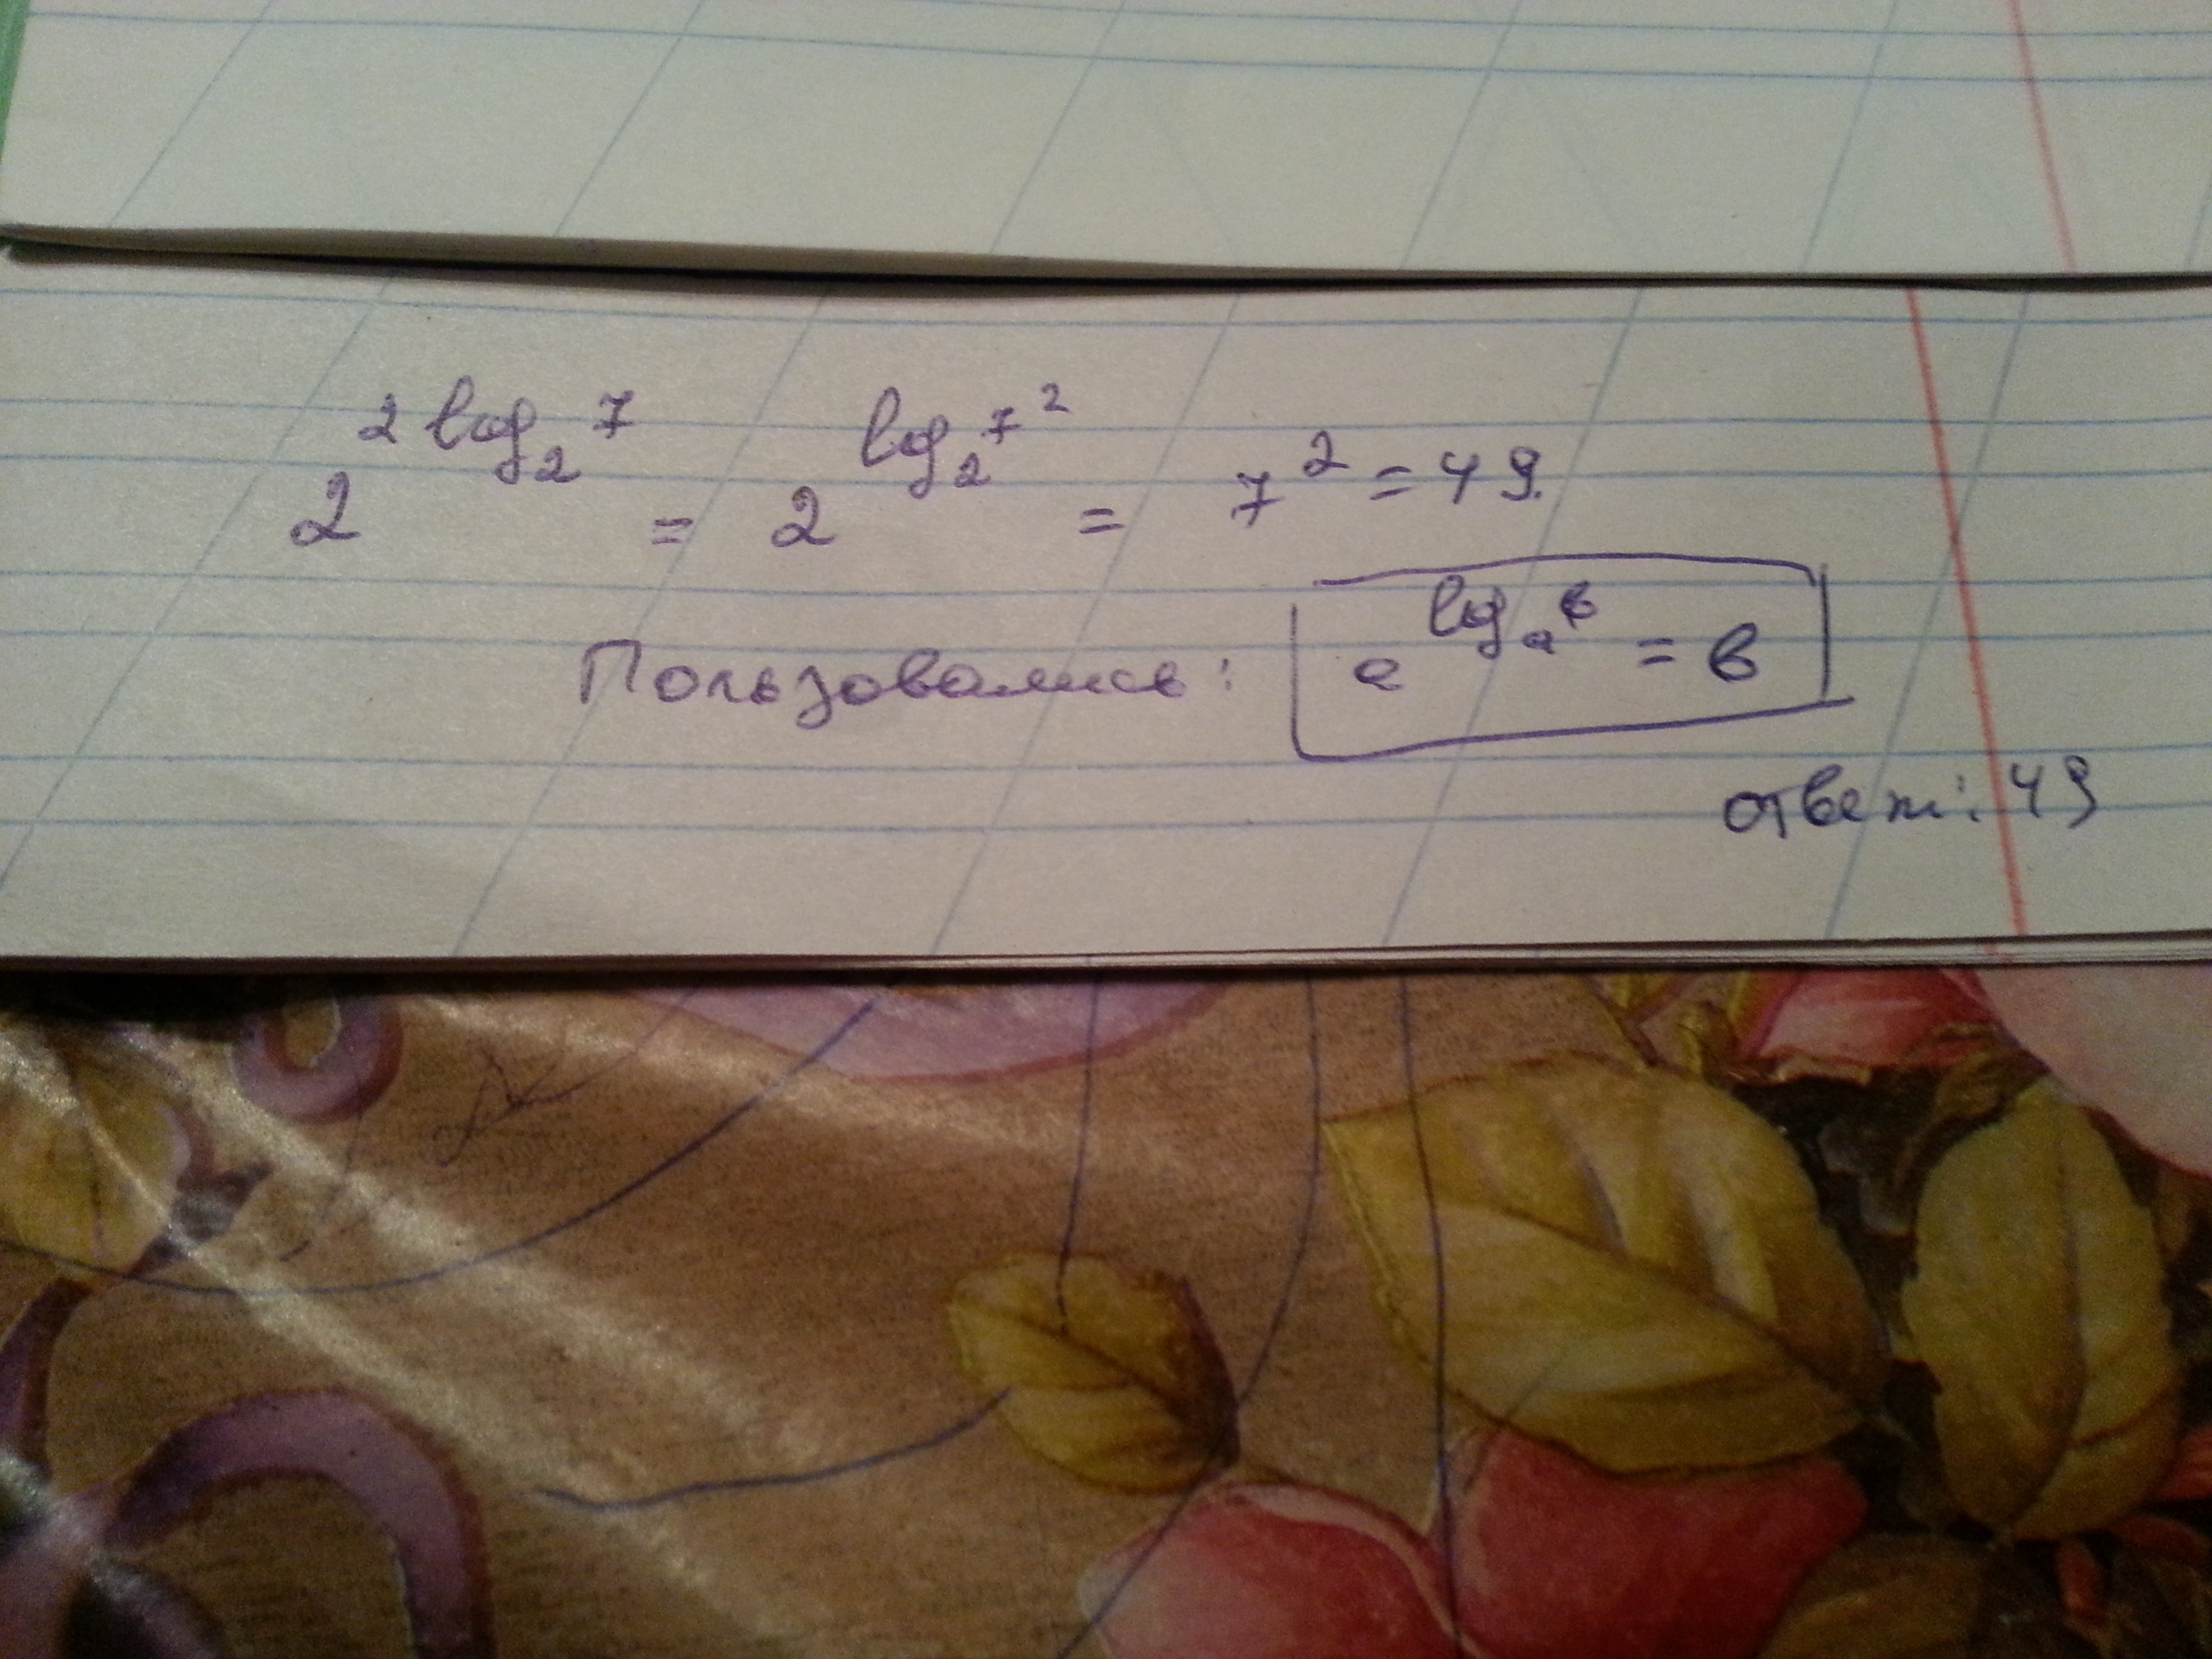 2^{2 log_2 7} = 2^{log_2 7^2} = 7^2 = 49.
Пользовались: a^{log_a в} = в
ответ: 49